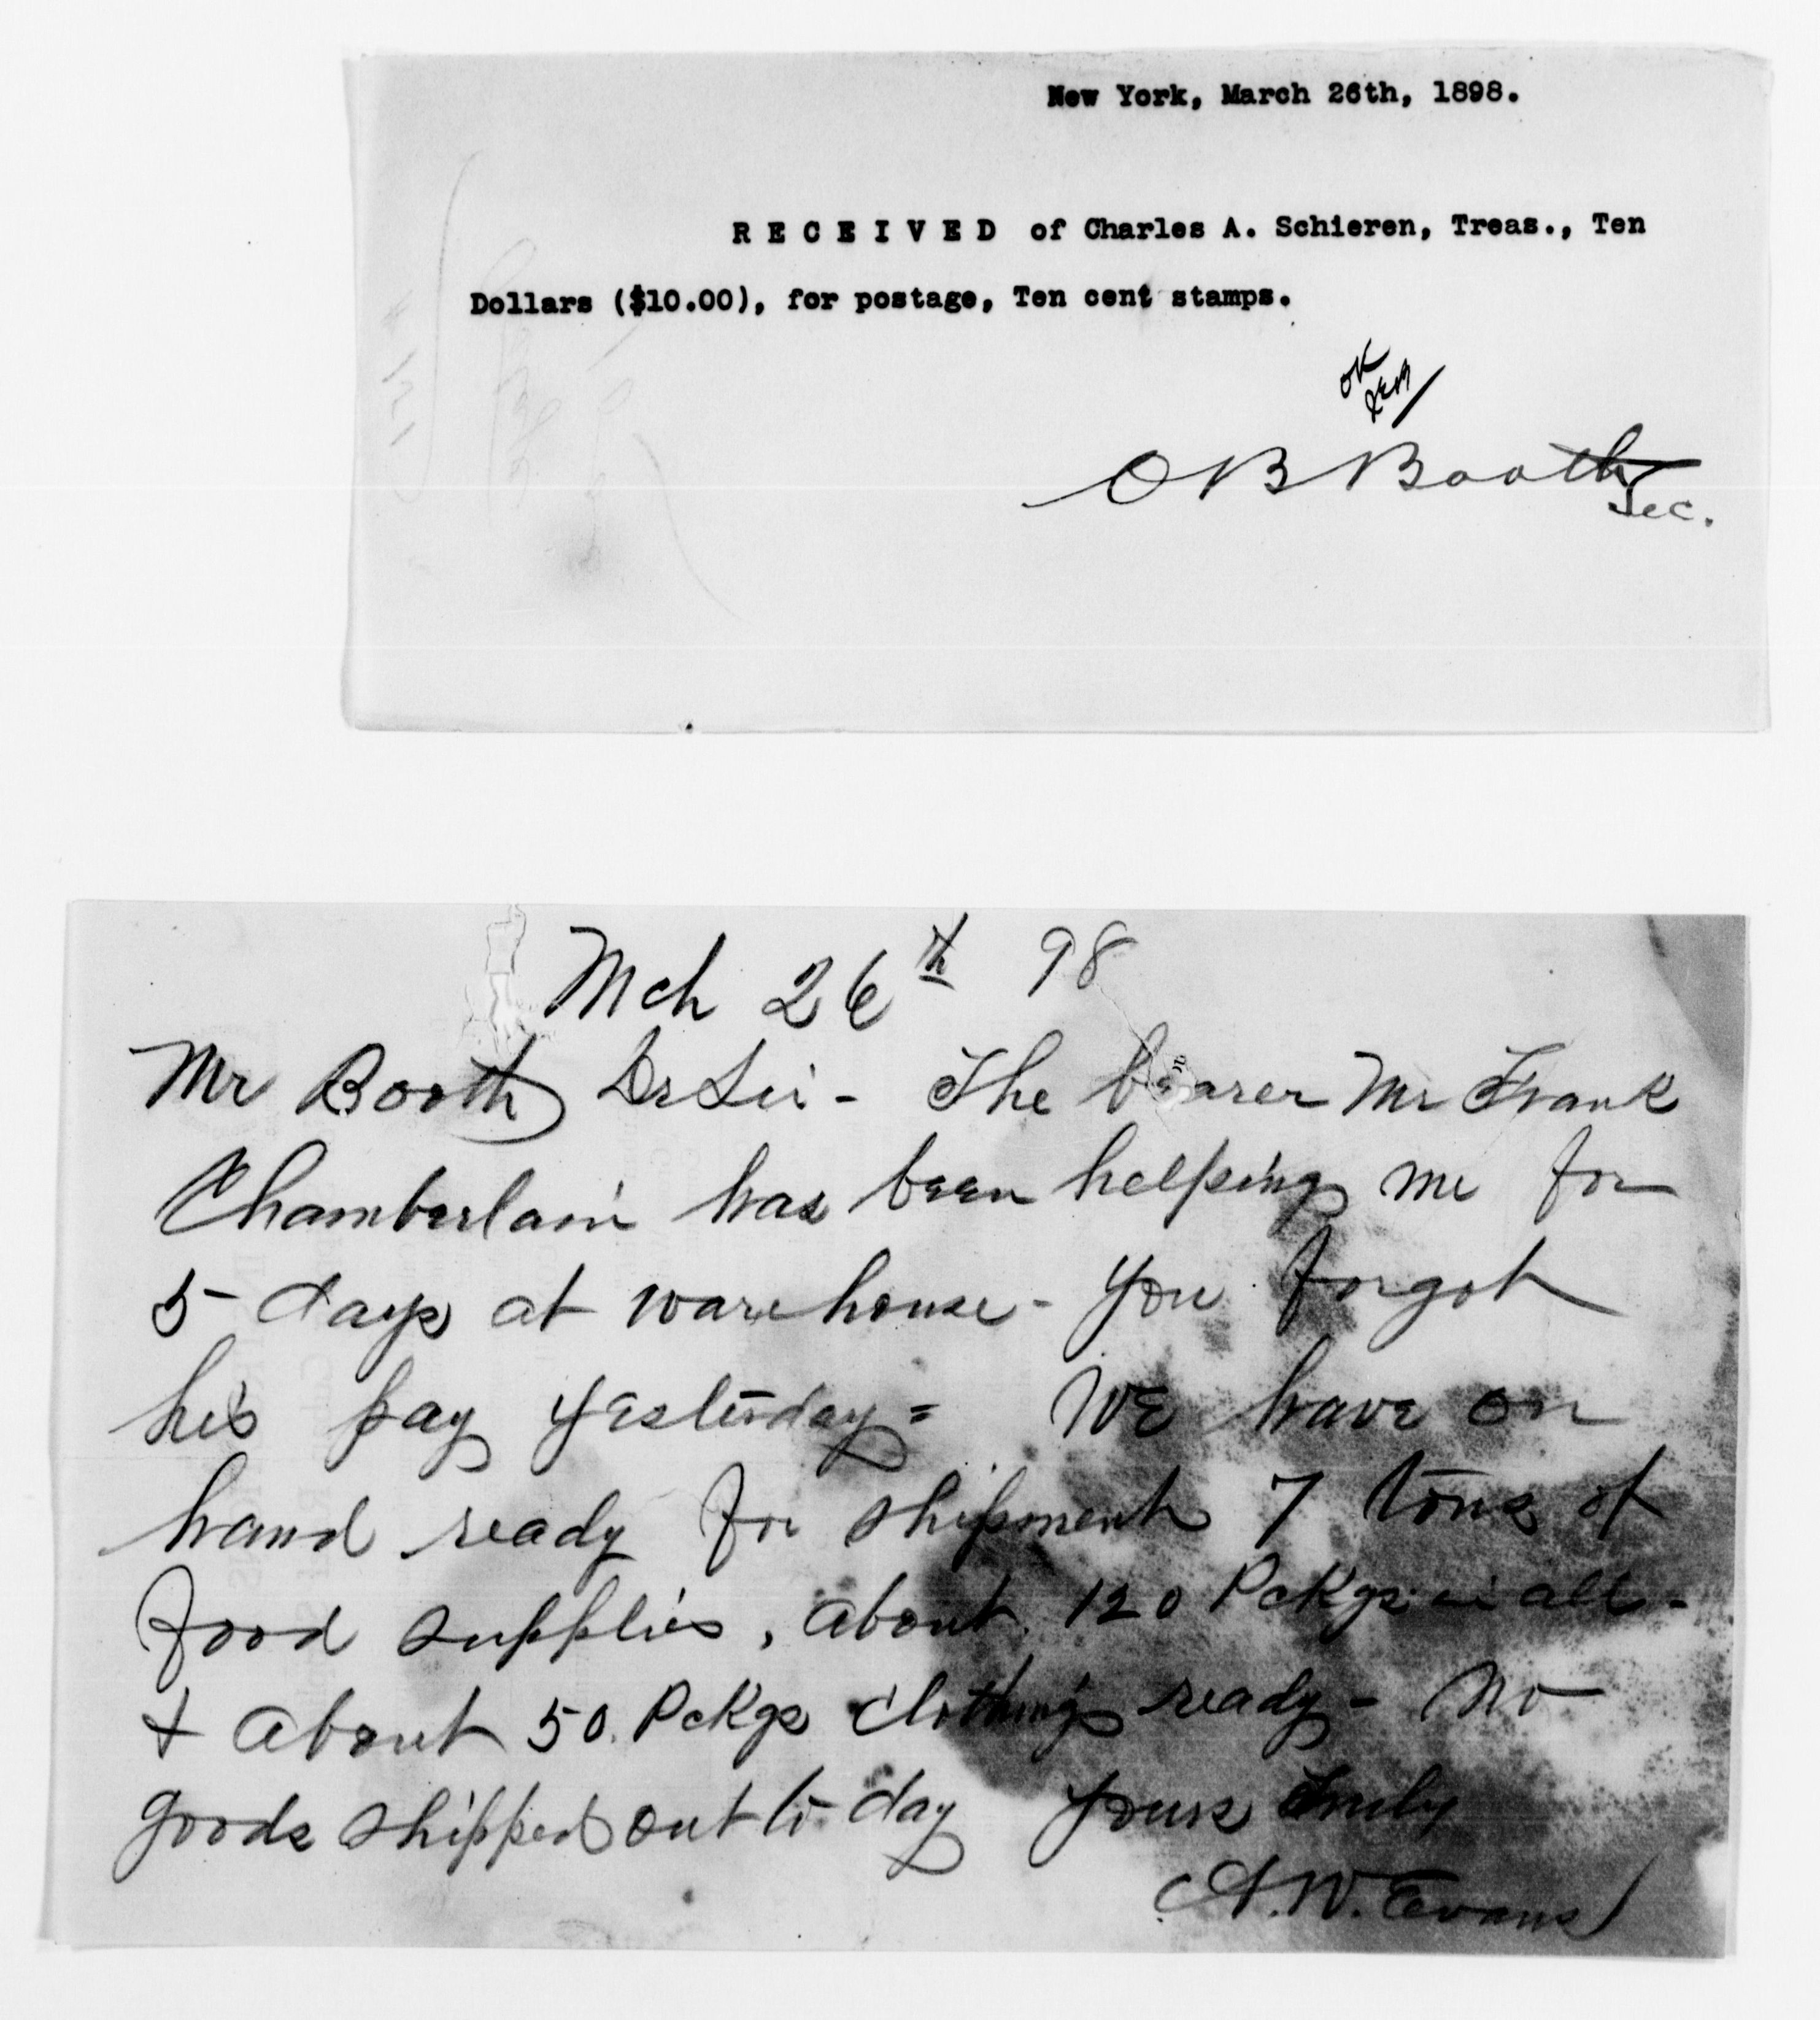 New York, March 26th, 1898.
RECEIVED of Charles A. Schieren, Treas., Ten
Dollars ($10.00), for postage, Ten cent stamps.
OK
O B Booth
Sec.
Mch 26th 98
Mr Booth Dr Sir - The bearer Mr Frank
Chamberlain has been helping me for
5 days at warehouse - you forgot
his pay yesterday = We have on
hand ready for shipment 7 tons of
food supplies, about 120 Pckgs in all -
+ about 50 Pckgs clothing ready - No
goods shipped out to day Yours truly
A. W. Evans